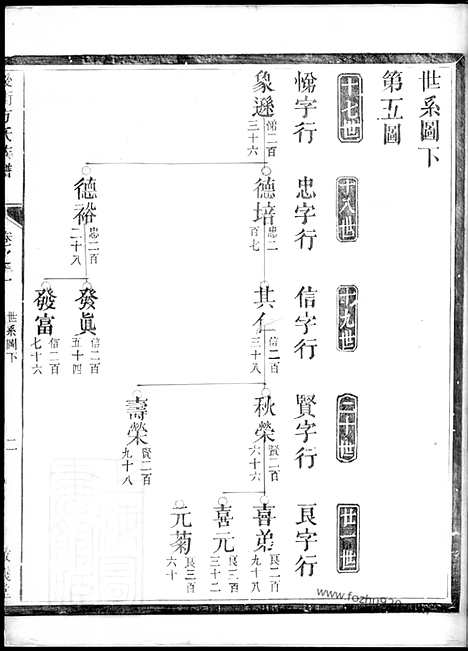 世系圖下
第五圖
十七世
十八世
十九世
二十世
廿一世
悌字行
忠字行
信字行
賢字行
良字行
象遜 悌二百三十六
德培 忠二百七
其仁 信二百三十八
秋榮 賢二百六十六
喜弟 良二百九十八
喜元 良三百三十二
元菊 良三百六十
壽榮 賢二百九十八
德裕 忠二百二十八
發眞 信二百五十四
發富 信二百七十六
方氏族譜
世系圖下
二
www.fozhu920.com